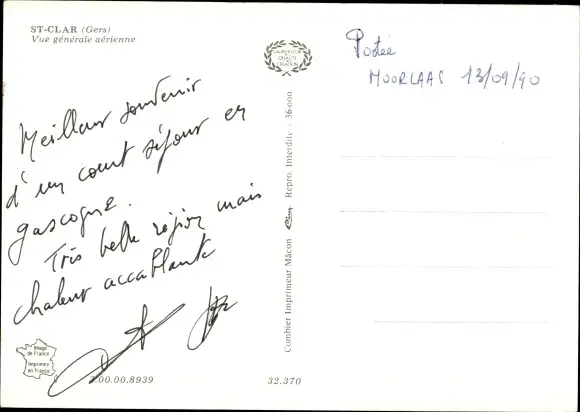 ST-CLAR (Gers)
Vue générale aérienne
Meilleur souvenir
d'un court séjour en
gascogne.
Très belle région mais
chaleur accablante
Image
de France
Imprimée
en France
2.00.00.8939
32.370
LABORATOIRE
QUALITE
CREATION
Combier Imprimeur Mâcon Cim Repro. Interdite - 36-000
Postée
MOORLAAS 13/09/90